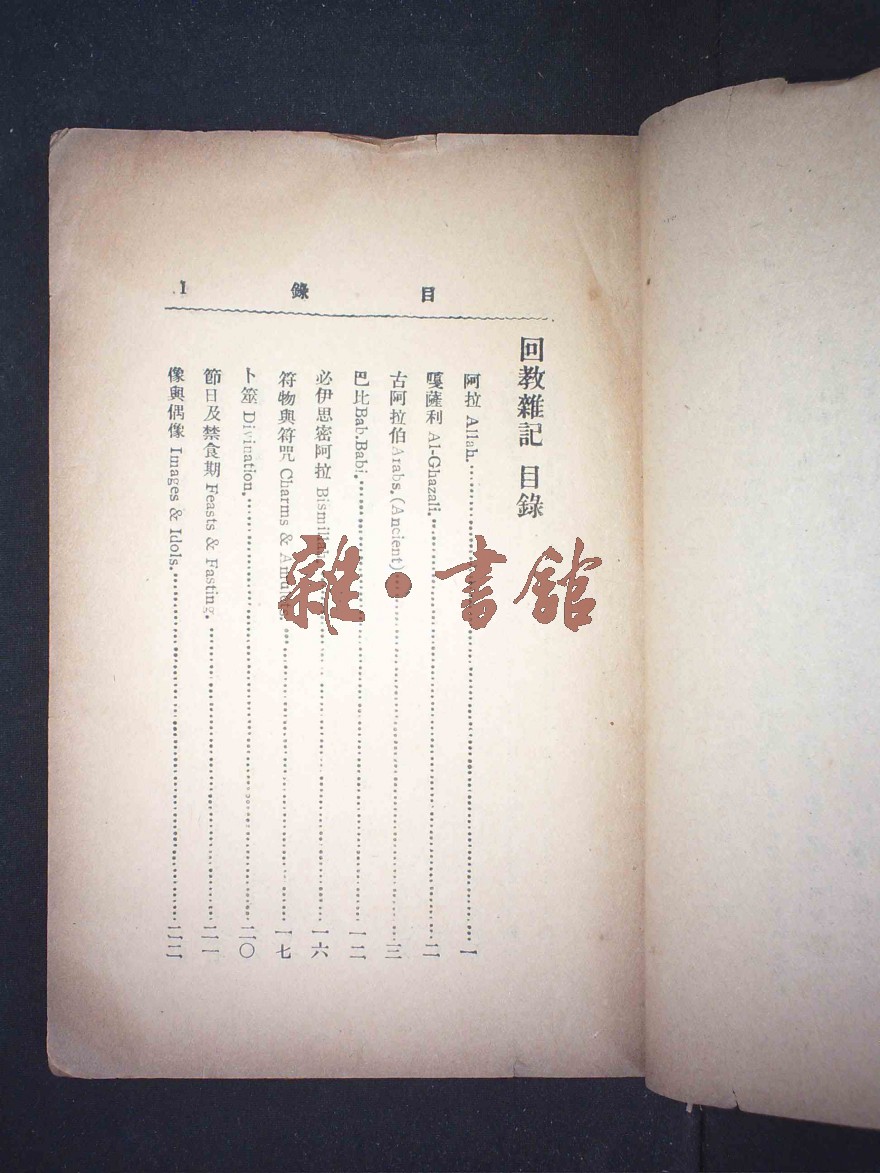 目錄 1
回教雜記 目錄
阿拉 Allah.……一
嘎薩利 Al-Ghazali.……二
古阿拉伯 Arabs.(Ancient)……三
巴比 Bab.Babi.……一二
必伊思密阿拉 Bismillah……一六
符物與符咒 Charms & Amulets……一七
卜筮 Divination.……二〇
節日及禁食期 Feasts & Fasting.……二一
像與偶像 Images & Idols.……二二
雜·書館